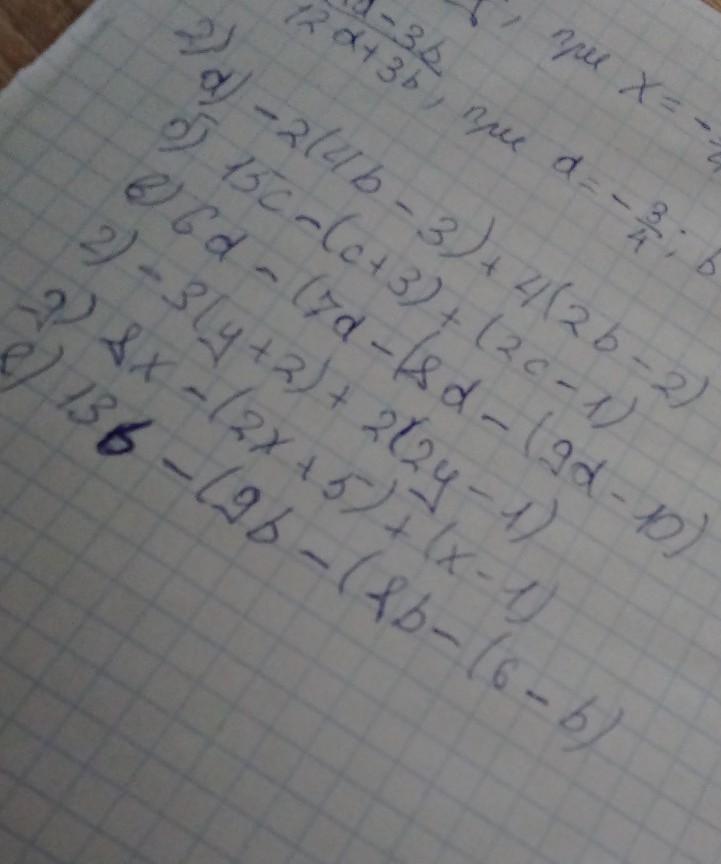 , при x = -
d - 3b
12d + 3b, при d = - 3/4; b
2)
а) - 2(4b - 3) + 4(2b - 2)
б) 15c - (c + 3) + (2c - 1)
в) 6d - (7d - (8d - (9d - 10)
г) - 3(y + 2) + 2(2y - 1)
д) 8x - (2x + 5) + (x - 1)
е) 13b - (9b - (8b - (6 - b)